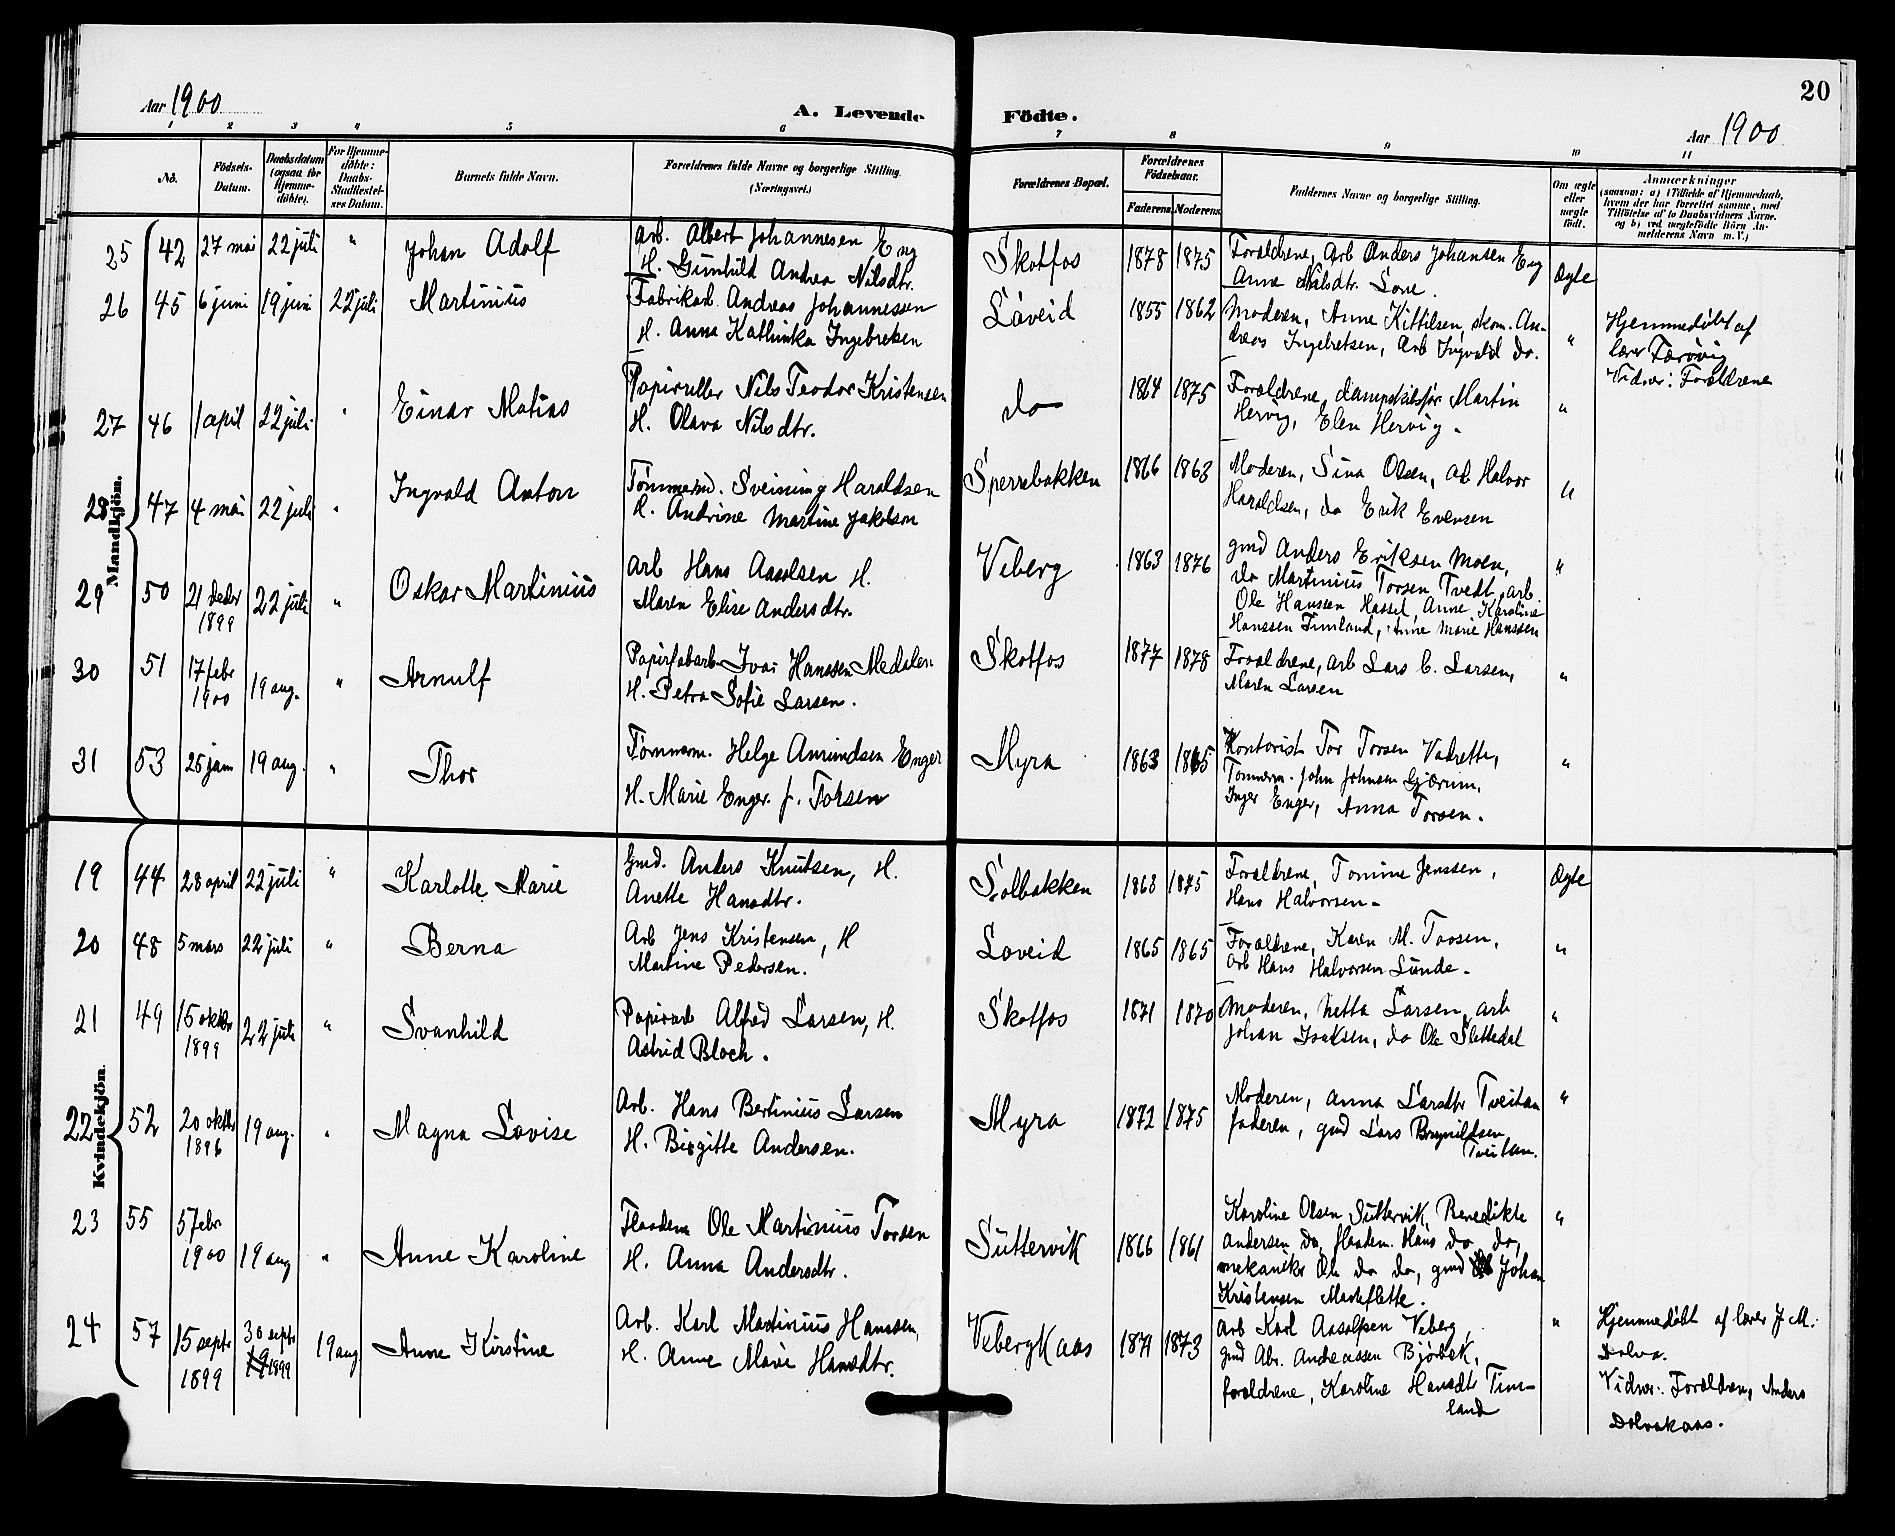 Aar 1900
A. Levende Födte.
20
Aar 1900
1 2 3 4 5 6 7 8 9 10 11
No.
Födsels-Datum.
Daabsdatum (ogsaa for Hjemme-döbte).
For Hjemme-döbte: Daabs-Stadfæstel-ses Datum.
Barnets fulde Navn.
Forældrenes fulde Navne og borgerlige Stilling. (Næringsvei.)
Forældrenes Bopæl.
Forældrenes Födselsaar.
Faderens. Moderens.
Faddernes Navne og borgerlige Stilling.
Om ægte eller uægte födt.
Anmærkninger
(saasom: a) i Tilfælde af Hjemmedaab, hvem der har forrettet samme, med Tilföielse af to Daabsvidners Navne, og b) ved uægtefödte Börn Anmelderens Navn m. V.)
Mandkjön.
25 42 27 mai 22 juli " Johan Adolf
Arb. Albert Johannesen Eng
H. Gunhild Andrea Nilsdtr.
Skotfos 1878 1875
Forældrene, Arb Anders Johansen Eng
Anne Nilsdtr. Lone.
Ægte
26 45 6 juni 19 juni 22 juli Martinius
Fabrikarb. Andreas Johannessen
H. Anna Kathinka Ingebretsen
Løveid 1855 1862
Moderen, Anne Kittilsen, skom. An-
dreas Ingebretsen, Arb Ingvald do.
"
Hjemmedøbt af
lærer Færøvig
Vidner: Forældrene
27 46 1 april 22 juli " Einar Matias
Papirruller Nils Teodor Kristensen
H. Olava Nilsdtr.
do 1864 1875
Forældrene, dampskibsfør. Martin
Hervig, Elen Hervig.
"
28 47 4 mai 22 juli " Ingvald Anton
Tømmerm. Sveinung Haraldsen
H. Andrine Martine Jakobsen
Sperrebakken 1866 1863
Moderen, Sina Olsen, arb Halvor
Haraldsen, do Erik Evensen
"
29 50 21 decbr 1899 22 juli " Oskar Martinius
Arb Hans Aasolsen H.
Maren Elise Andersdtr.
Viberg 1863 1876
gmd Anders Eriksen Moen,
do Martinius Torsen Tvedt, arb
Ole Hanssen Hassel, Anne Karoline
Hanssen Timland, Anne Marie Hanssen
"
30 51 17 febr 1900 19 aug. " Arnulf
Papirfabarb Ivar Hanssen Medalen
H. Petra Sofie Larsen.
Skotfos 1877 1878
Forældrene, arb Lars C. Larsen,
Maren Larsen
"
31 53 25 jan 19 aug. " Thor
Tømmerm. Helge Amundsen Enger
H. Marie Enger f. Torsen
Myra 1863 1865
Kontorist Tor Torsen Vadrette,
Tømmerm. John Johnsen Gjærum,
Inger Enger, Anna Torsen.
"
Kvindekjön.
19 44 28 april 22 juli " Karlotte Marie
Gmd. Anders Knutsen, H.
Anette Hansdtr.
Solbakken 1863 1875
Forældrene, Tomine Jenssen,
Hans Halvorsen.
Ægte
20 48 5 mars 22 juli " Berna
Arb Jens Kristensen, H
Martine Pedersen.
Løveid 1865 1865
Forældrene, Karen M. Torsen,
Arb Hans Halvorsen Lunde.
"
21 49 15 oktbr 1899 22 juli " Svanhild
Papirarb Alfred Larsen, H.
Astrid Bloch.
Skotfos 1871 1870
Moderen, Netta Larsen, arb
Johan Isaksen, do Ole Slettedal
"
22 52 20 oktbr 1896 19 aug. " Magna Lovise
Arb. Hans Bertinius Larsen
H. Birgitte Andersen.
Myra 1872 1875
Moderen, Anna Larsdtr Tveitan
faderen, gmd Lars Brynildsen
Tveitan.
"
23 55 5 febr 1900 19 aug " Anne Karoline
Flaadem Ole Martinius Torsen
H. Anna Andersdtr.
Suttervik 1866 1861
Karoline Olsen Suttervik, Benedikte
Andersen do, flaadem. Hans do do,
mekaniker Ole do do, gmd Johan
Kristensen Mareflette.
"
24 57 15 septr 1899 30 septr 1899 19 aug Anne Kirstine
Arb. Karl Martinius Hanssen,
H. Anne Marie Hansdtr.
Vibergkaas 1871 1873
Arb Karl Aasolfsen Viberg,
gmd Abr. Andreassen Bjørbek,
forældrene, Karoline Hansdtr Tim-
land
"
Hjemmedøbt af lærer J M.
Dolva.
Vidner: Forældren, Anders
Dolvakaas.